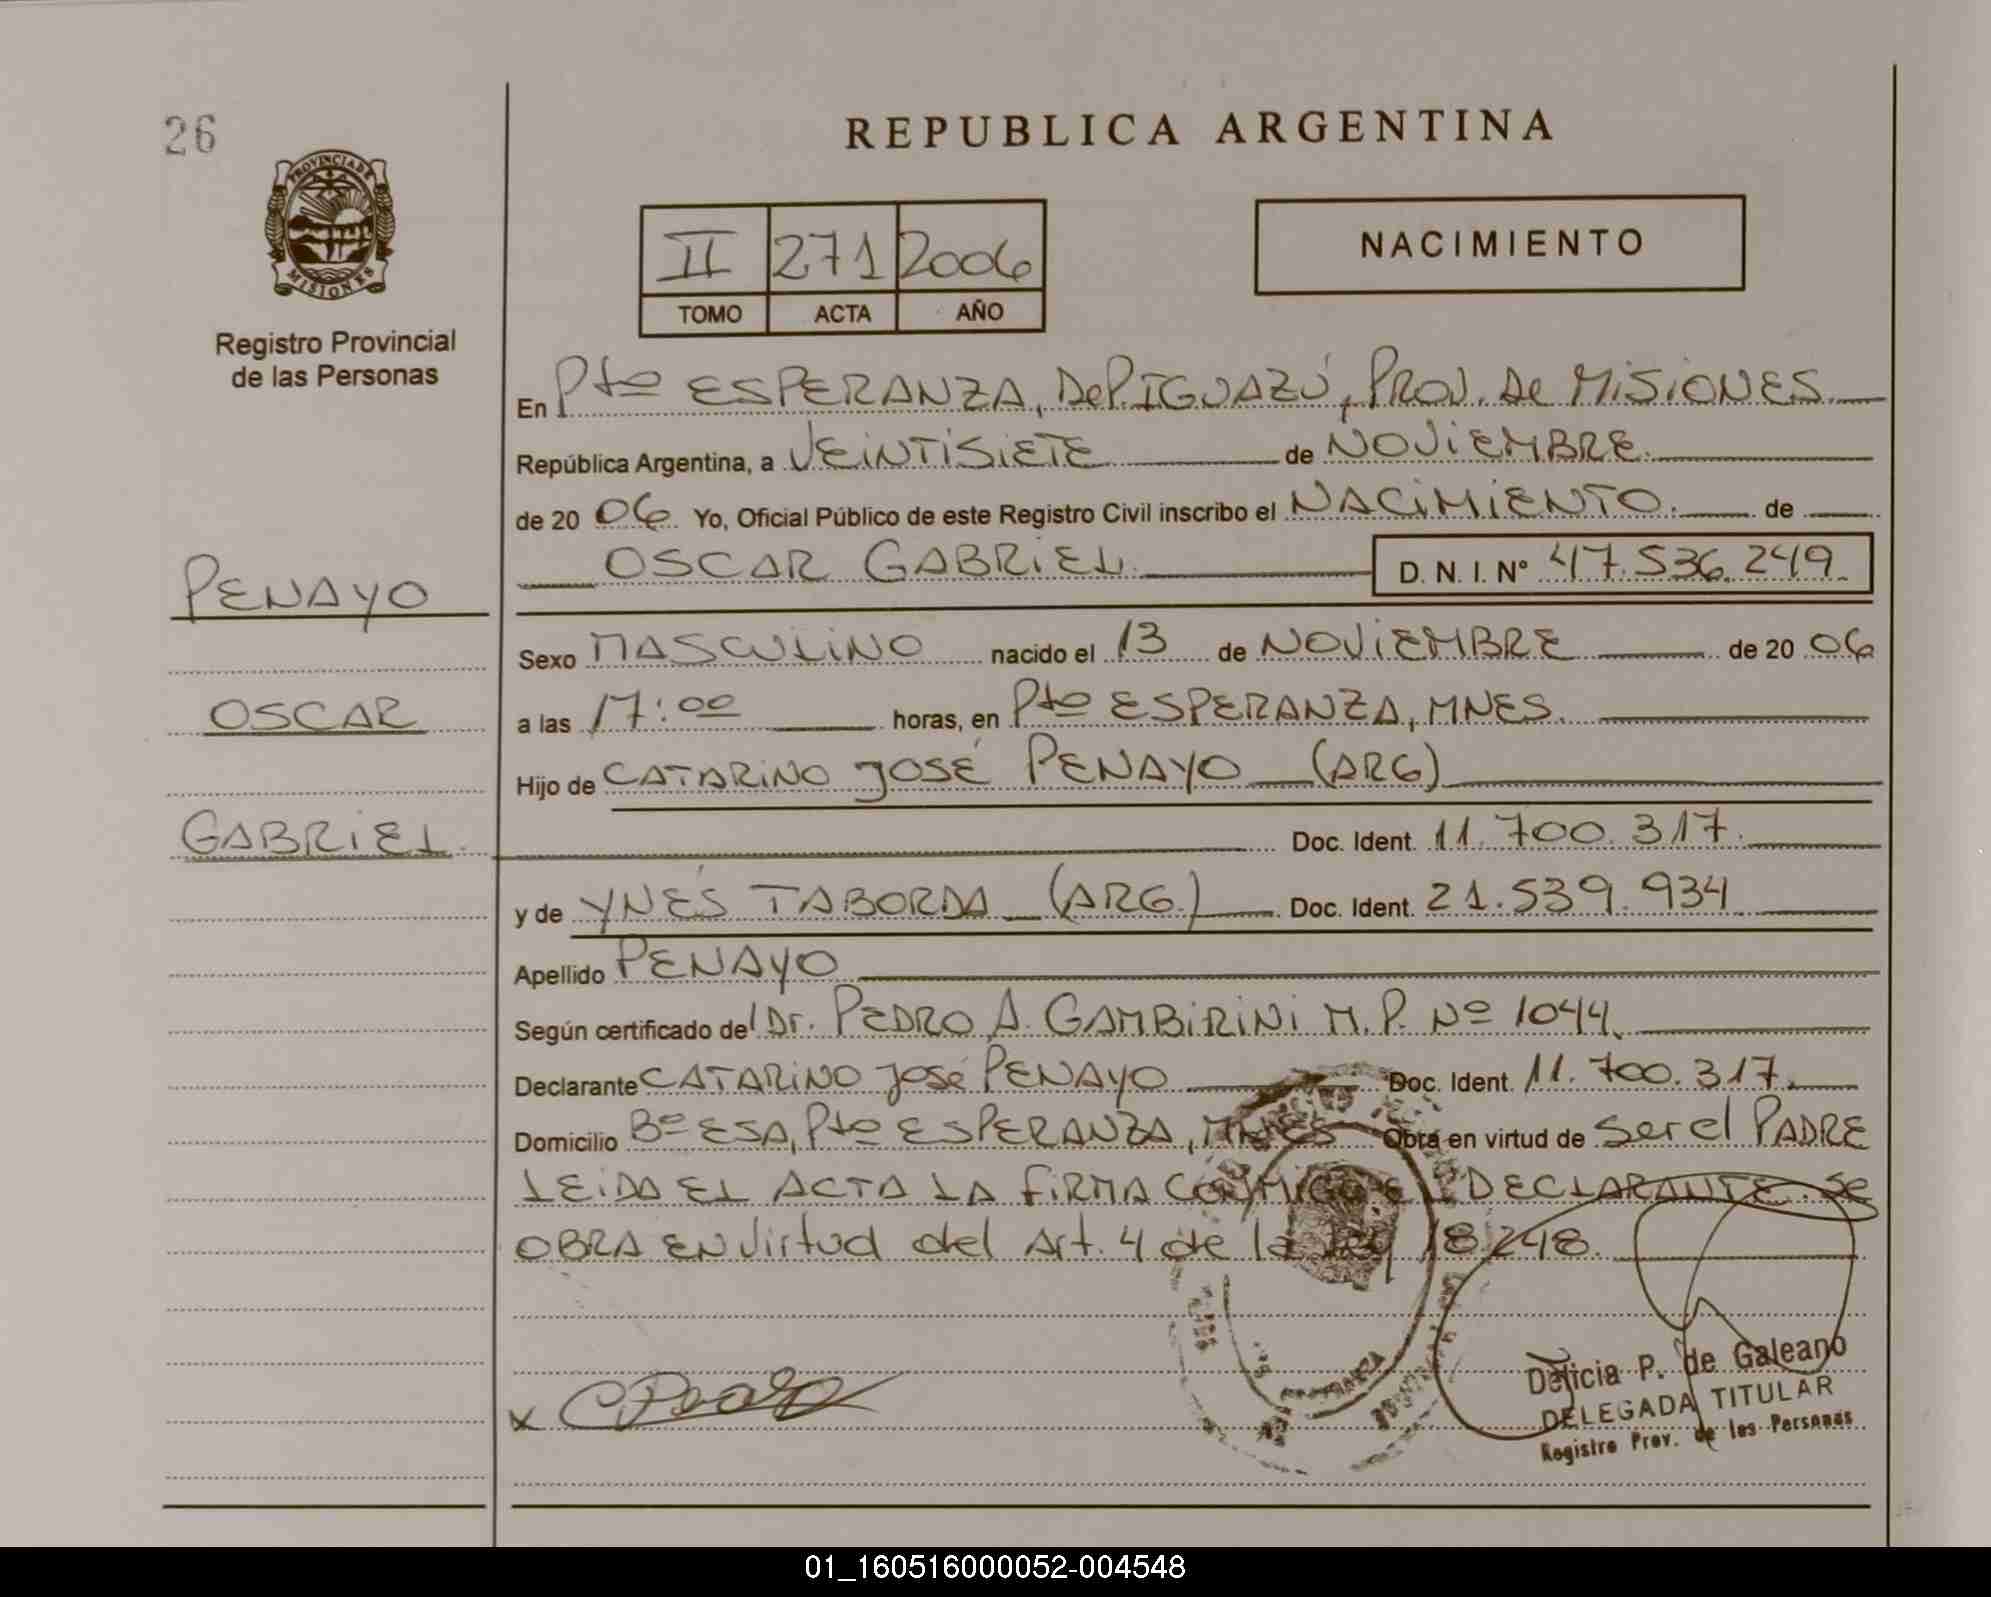 26
REPUBLICA ARGENTINA
PROVINCIA DE
MISIONES
Registro Provincial
de las Personas
II 271 2006
TOMO ACTA AÑO
NACIMIENTO
En Pto ESPERANZA, DeP. IGUAZÚ, PROV. De MISIONES.
República Argentina, a VEINTISIETE de NOVIEMBRE.
de 20 06 Yo, Oficial Público de este Registro Civil inscribo el NACIMIENTO. de
OSCAR GABRIEL. D. N. I. Nº 47.536.249
PENAYO
OSCAR
GABRIEL.
Sexo MASCULINO nacido el 13 de NOVIEMBRE de 20 06
a las 17:00 horas, en Pto ESPERANZA, MNES.
Hijo de CATARINO JOSÉ PENAYO (ARG)
Doc. Ident. 11.700.317.
y de YNÉS TABORDA (ARG.) Doc. Ident. 21.539.934
Apellido PENAYO
Según certificado del Dr. PEDRO A. GAMBIRINI M.P. Nº 1044.
Declarante CATARINO José PENAYO Doc. Ident. 11.700.317.
Domicilio Bº ESA, Pto ESPERANZA, MNES Obra en virtud de Ser el PADRE
LEIDA EL ACTA LA FIRMA CONMIGO EL DECLARANTE. Se
OBRA EN Virtud del Art. 4 de la Ley 18.248.
x
Delicia P. de Galeano
DELEGADA TITULAR
Registro Prov. de las Personas
01_160516000052-004548